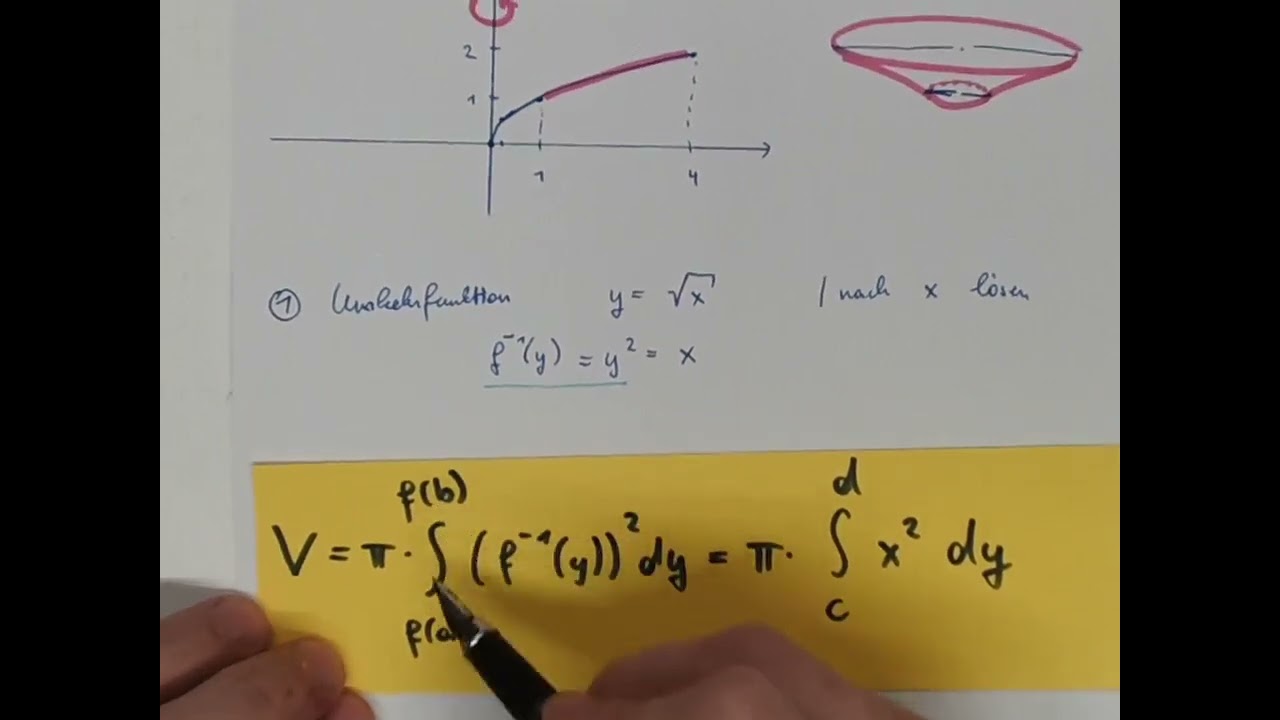 2
1
1
4
① Umkehrfunktion y = √x / nach x lösen
f⁻¹(y) = y² = x
f(b) d
V = π · ∫ (f⁻¹(y))² dy = π · ∫ x² dy
f(a c